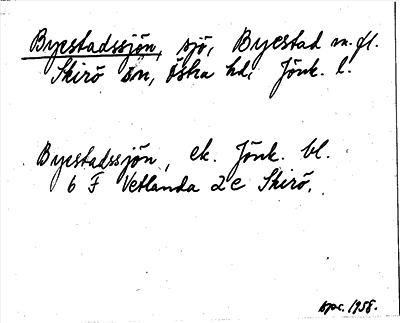 Byestadssjön, sjö, Byestad m.fl.
Skirö sn, Östra hd, Jönk. l.
Byestadssjön, ek. Jönk. bl.
6 F Vetlanda 2 e Skirö.
1958.